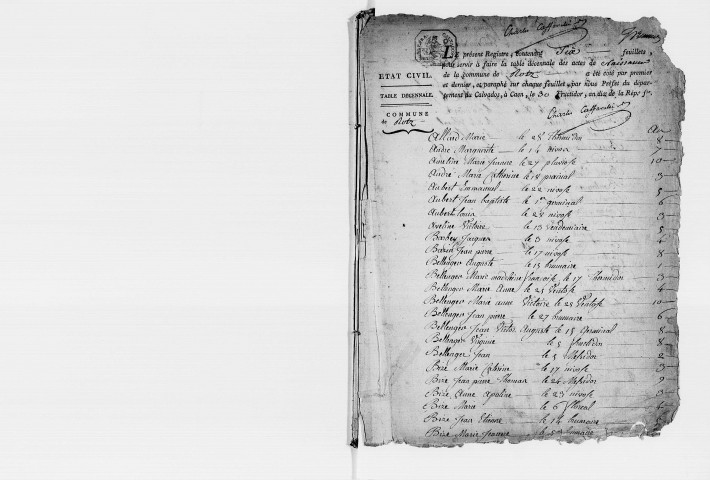 Charles Caffarelli
LE présent Registre, contenant Six feuillets,
pour servir à faire la table décennale des actes de Naissance
ETAT CIVIL.
de la commune de Rotz a été coté par premier
et dernier, et paraphé sur chaque feuillet, par nous Préfet du dépar-
TABLE DÉCENNALE.
tement du Calvados, à Caen, le 30 Fructidor, an dix de la Rép. fse.
COMMUNE
de Rotz
Charles Caffarelli
An
Allard Marie le 28 Thermidor 8
André Marguerite le 14 nivose
Ameline Marie jeanne le 27 pluviose 10
André Marie Catherine le 18 prairial 3
Aubert Emmanuel le 22 nivose 8
Aubert jean baptiste le 1er germinal 6
Aubert louis le 28 nivose 3
Aveline Victoire le 13 Vendemiaire 8
Barbey Jacques le 3 nivose 4
Bazin jean pierre le 17 nivose 8
Bellenger Auguste le 15 brumaire
Bellenger Marie madelaine francoise le 17 Thermidor 3
Bellenger Marie Anne le 25 Ventose 4
Bellenger Marie anne Victoire le 28 Ventose 10
Bellenger jean pierre le 27 brumaire 6
Bellenger Jean Victor Auguste le 15 Germinal 8
Bellenger le 5 fructidor 8
Bellenger Jean le 5 Messidor 2
Bizé Marie le 17 nivose 3
Bizé Jean pierre Thomas le 24 Messidor 9
Bizé Anne Apoline le 23 nivose 3
Bizé Marie le 6 floreal 4
Bizé Jean Etienne le 14 brumaire 5
Bizé Marie Jeanne le brumaire